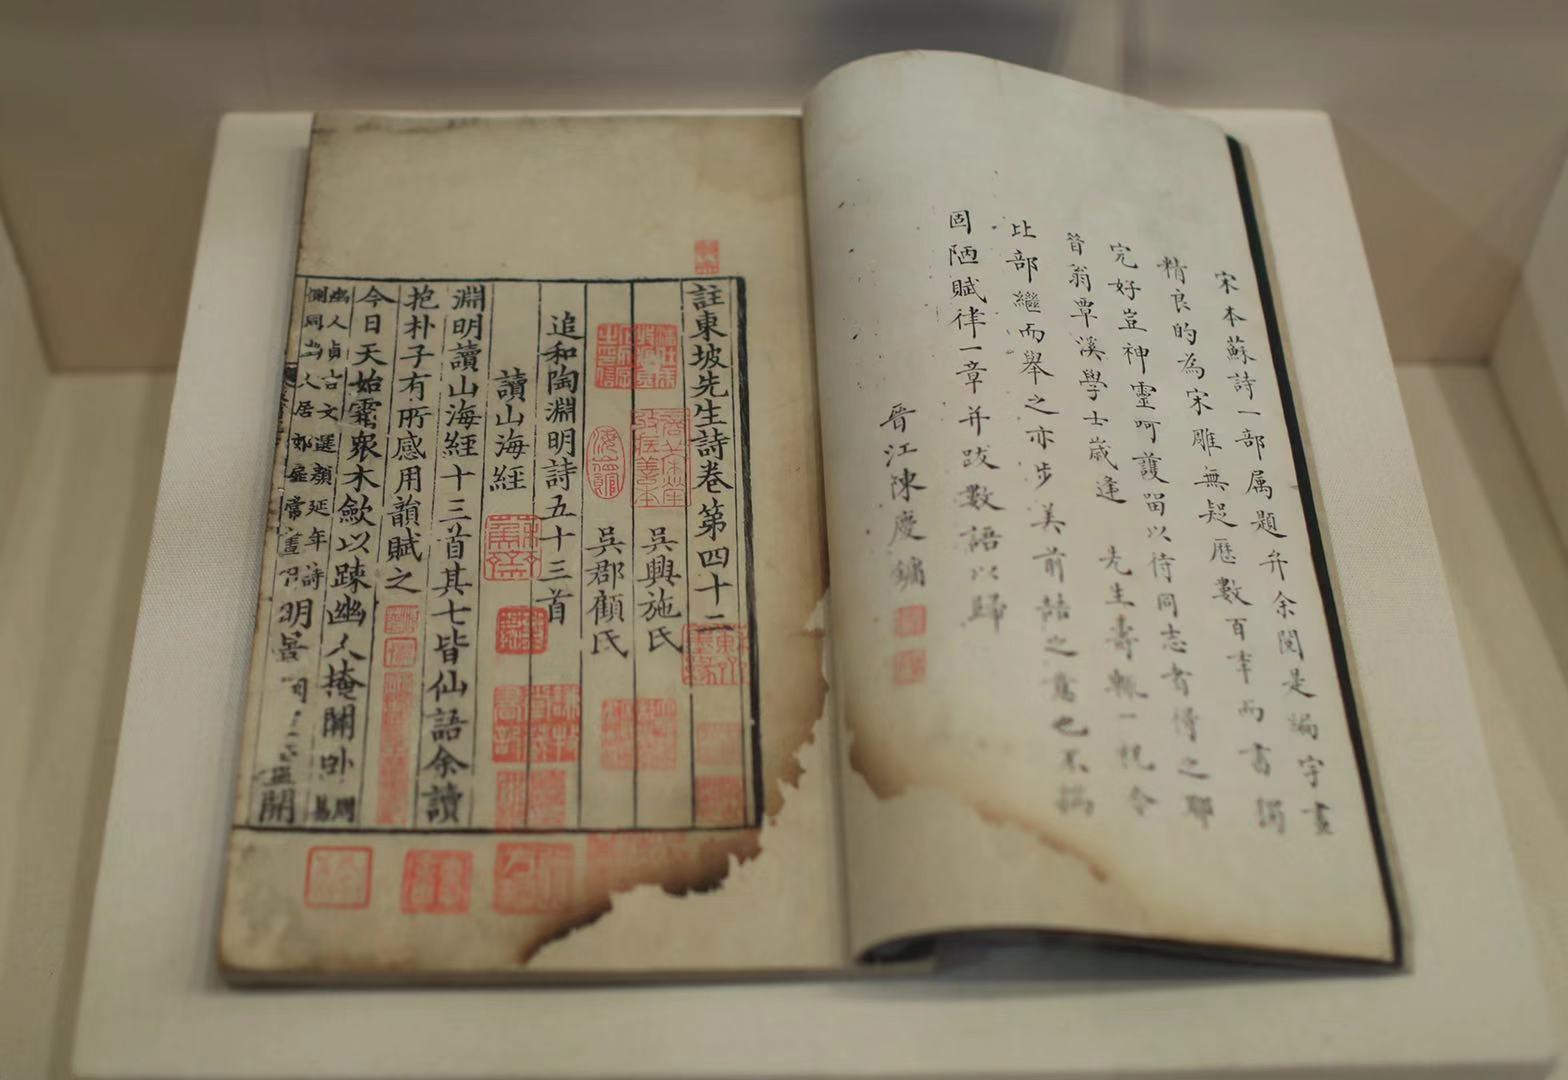 宋本蘇詩一部属題弁余閱是編字畫
精良的為宋雕無疑歷數百年而書獨
完好豈神靈呵護留以待同志者得之耶
昔翁覃溪學士歳逢 先生壽輒一祝今
比部繼而舉之亦步美前喆之意也不揣
固陋賦律一章并跋數語以歸
晉江陳慶鏞
註東坡先生詩卷第四十二
吳興施氏
吳郡顧氏
追和陶淵明詩五十三首
讀山海經
淵明讀山海經十三首其七皆仙語余讀
抱朴子有所感用韻賦之
今日天始霜衆木斂以疎幽人掩關卧周易
幽人貞吉文選顏延年詩
側同幽人居郊扉常晝閉
明景
開